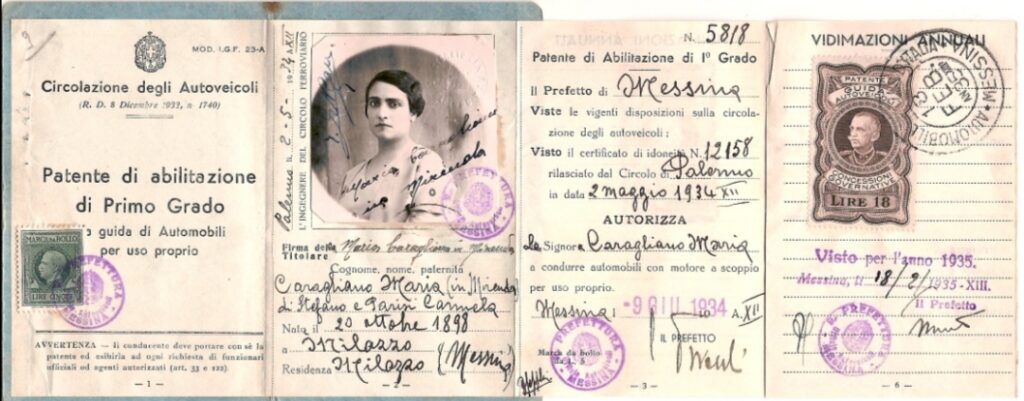 MOD. I.G.F. 23-A
Circolazione degli Autoveicoli
(R. D. 8 Dicembre 1933, n. 1740)
Patente di abilitazione
di Primo Grado
a guida di Automobili
per uso proprio
MARCA DA BOLLO
LIRE
PREFETTURA
MESSINA
AVVERTENZA — Il conducente deve portare con sè la
patente ed esibirla ad ogni richiesta di funzionari
ufficiali od agenti autorizzati (art. 33 e 122)
— 1 —
Palermo li 2-5-1934 XII
L'INGEGNERE DEL CIRCOLO FERROVIARIO
PREFETTURA
MESSINA
Firma della
Titolare
Maria Caragliano in Miranda
Cognome, nome, paternità
Caragliano Maria (in Miranda
di Stefano e Parisi Carmela
Nato il 20 ottobre 1898
a Milazzo
Residenza Milazzo (Messina)
— 2 —
N. 5818
Patente di Abilitazione di I° Grado
Il Prefetto di Messina
Viste le vigenti disposizioni sulla circola-
zione degli autoveicoli;
Visto il certificato di idoneità N. 12158
rilasciato dal Circolo di Palermo
in data 2 maggio 1934 XII
AUTORIZZA
la Signora Caragliano Maria
a condurre automobili con motore a scoppio
per uso proprio.
Messina: -9 GIU 1934 A. XII
IL PREFETTO
PREFETTURA
MESSINA
Marca da bollo
da L. 5
— 3 —
VIDIMAZIONI ANNUALI
PATENTE
GUIDA
AUTOVEICOLI
CONCESSIONI
GOVERNATIVE
LIRE 18
MESSINA
AUTOMOBIL
FEB
Visto per l'anno 1935.
Messina, li 18/2/1935-XIII.
Il Prefetto
PREFETTURA
MESSINA
— 6 —